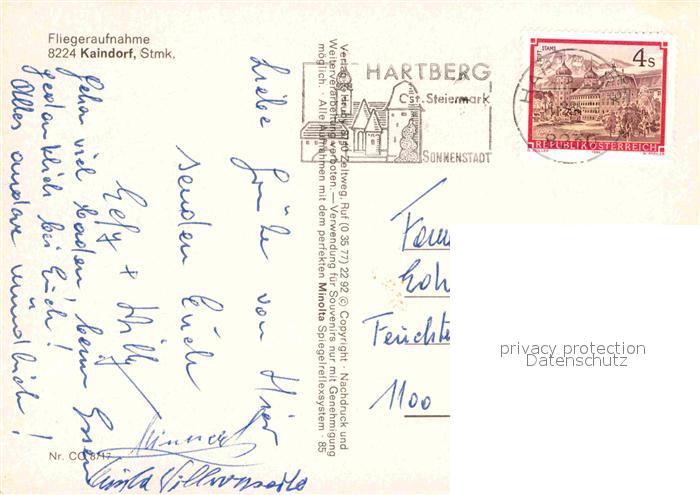 Fliegeraufnahme
8224 Kaindorf, Stmk.
Liebe Grüße von Hier
senden Euch
Willy
Gehn viel baden, beim Essen
gedanklich bei Euch!
Alles andere mündlich!
Nr. CO 8717
Verlag Hruby, Zeltweg, Ruf (0 35 77) 22 92 © Copyright · Nachdruck und
Weiterverarbeitung verboten. — Verwendung für Souvenirs nur mit Genehmigung
möglich. Alle Aufnahmen mit dem perfekten Minolta Spiegelreflexsystem · 85
HARTBERG
Ost. Steiermark
SONNENSTADT
STIFT STAMS
4 S
REPUBLIK ÖSTERREICH
Fam
1100
privacy protection
Datenschutz